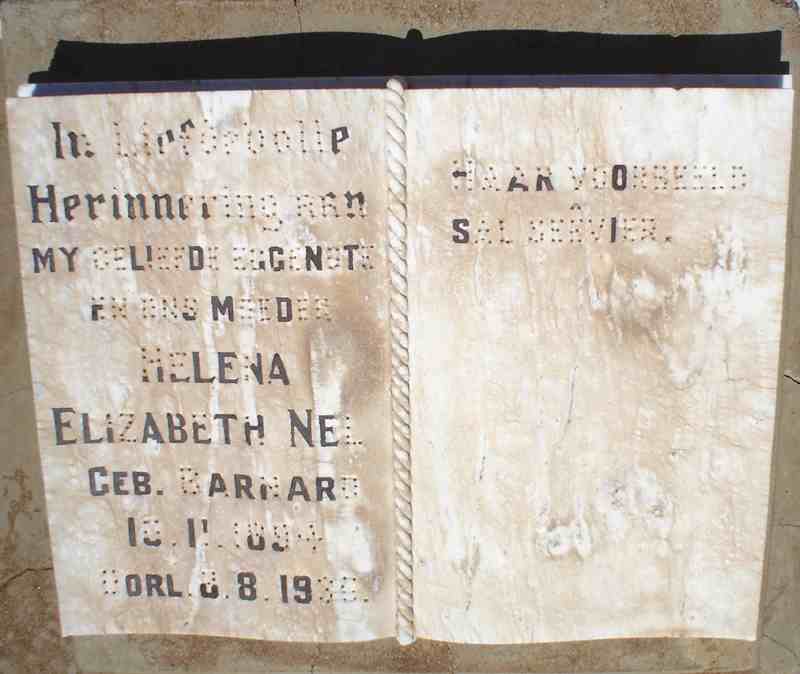 In Liefdevolle
Herinnering aan
MY GELIEFDE EGGENOTE
EN ONS MOEDER
HELENA
ELIZABETH NEL
GEB. BARNARD
OORL. 8.8.19
HAAR VOORBEELD
SAL